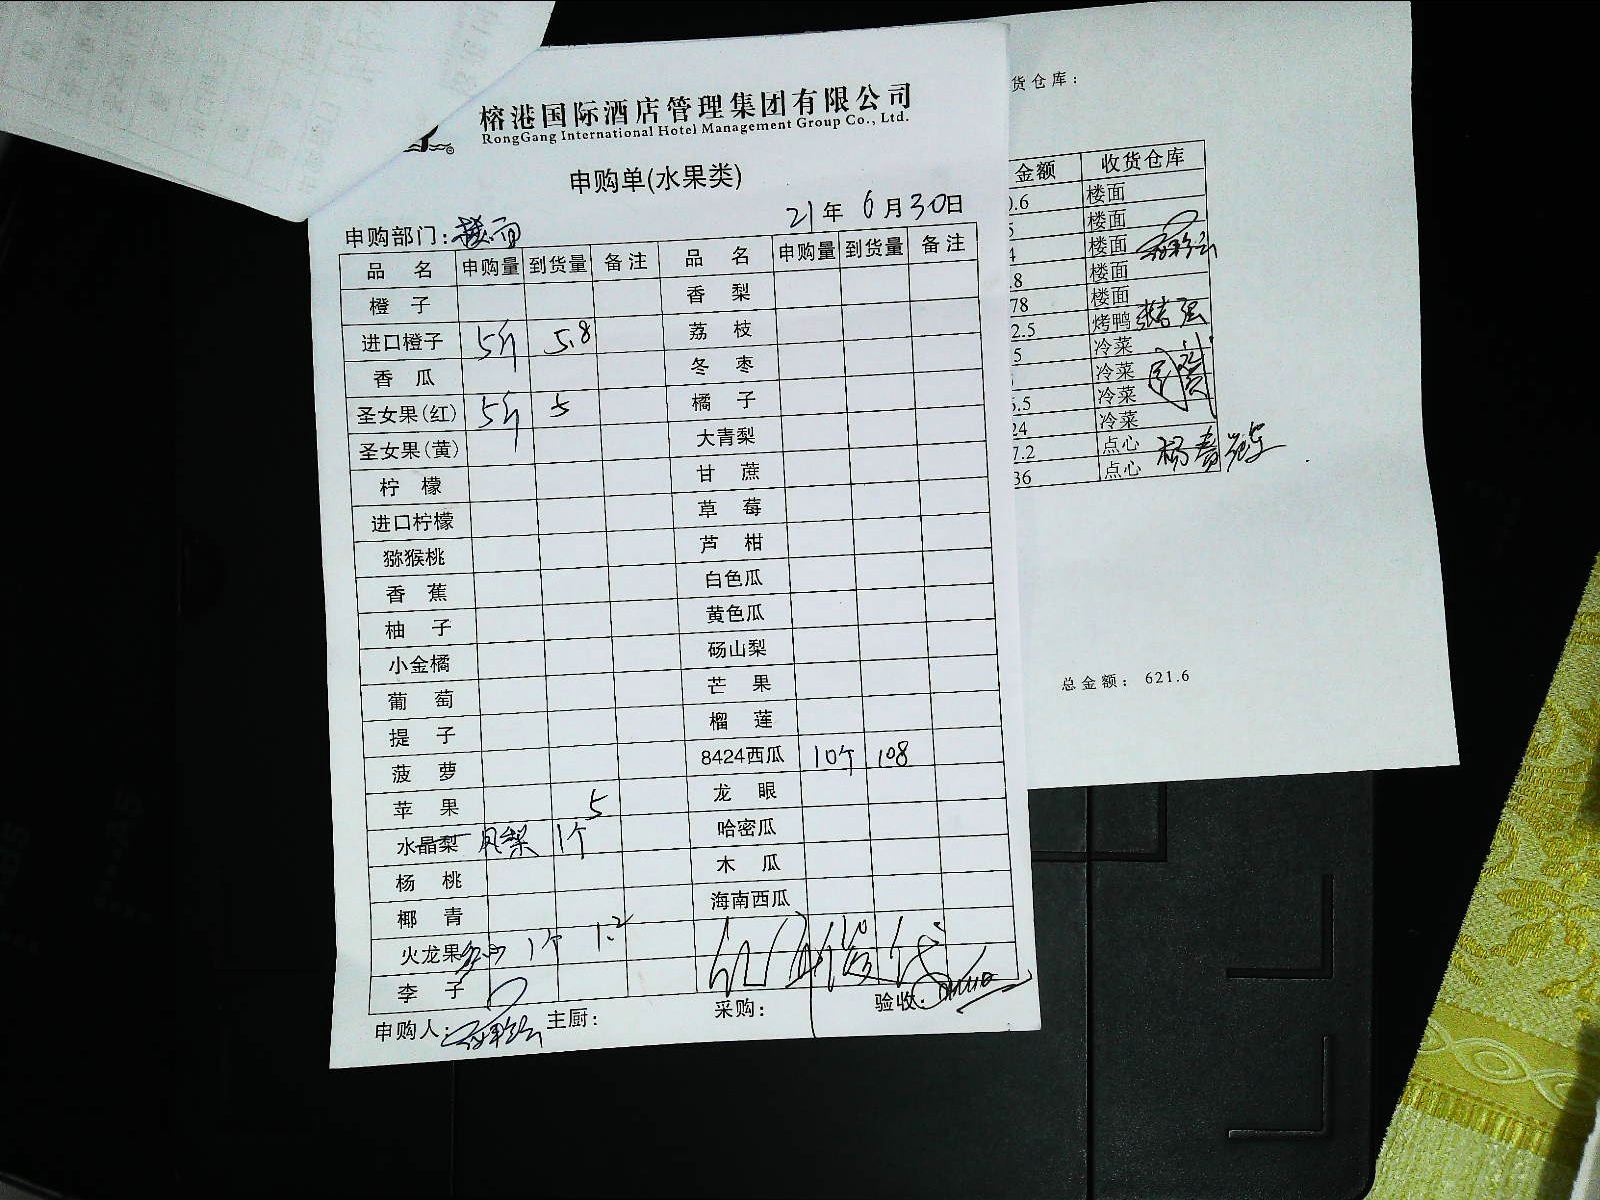 榕港国际酒店管理集团有限公司
RongGang International Hotel Management Group Co., Ltd.
申购单(水果类)
申购部门：楼面 21年 6月30日
品 名 申购量 到货量 备注 品 名 申购量 到货量 备注
橙 子 香 梨
进口橙子 5斤 5.8 荔 枝
香 瓜 冬 枣
圣女果(红) 5斤 5 橘 子
圣女果(黄) 大青梨
柠 檬 甘 蔗
进口柠檬 草 莓
猕猴桃 芦 柑
香 蕉 白色瓜
柚 子 黄色瓜
小金橘 砀山梨
葡 萄 芒 果
提 子 榴 莲
菠 萝 8424西瓜 10个 108
苹 果 5 龙 眼
水晶梨 凤梨 1个 哈密瓜
杨 桃 木 瓜
椰 青 海南西瓜
火龙果 1个 1.2
李 子
申购人： 主厨： 采购： 验收：
货仓库：
金额 收货仓库
0.6 楼面
5 楼面
4 楼面
.8 楼面
78 楼面
2.5 烤鸭
5 冷菜
冷菜
6.5 冷菜
24 冷菜
7.2 点心
36 点心
总金额： 621.6